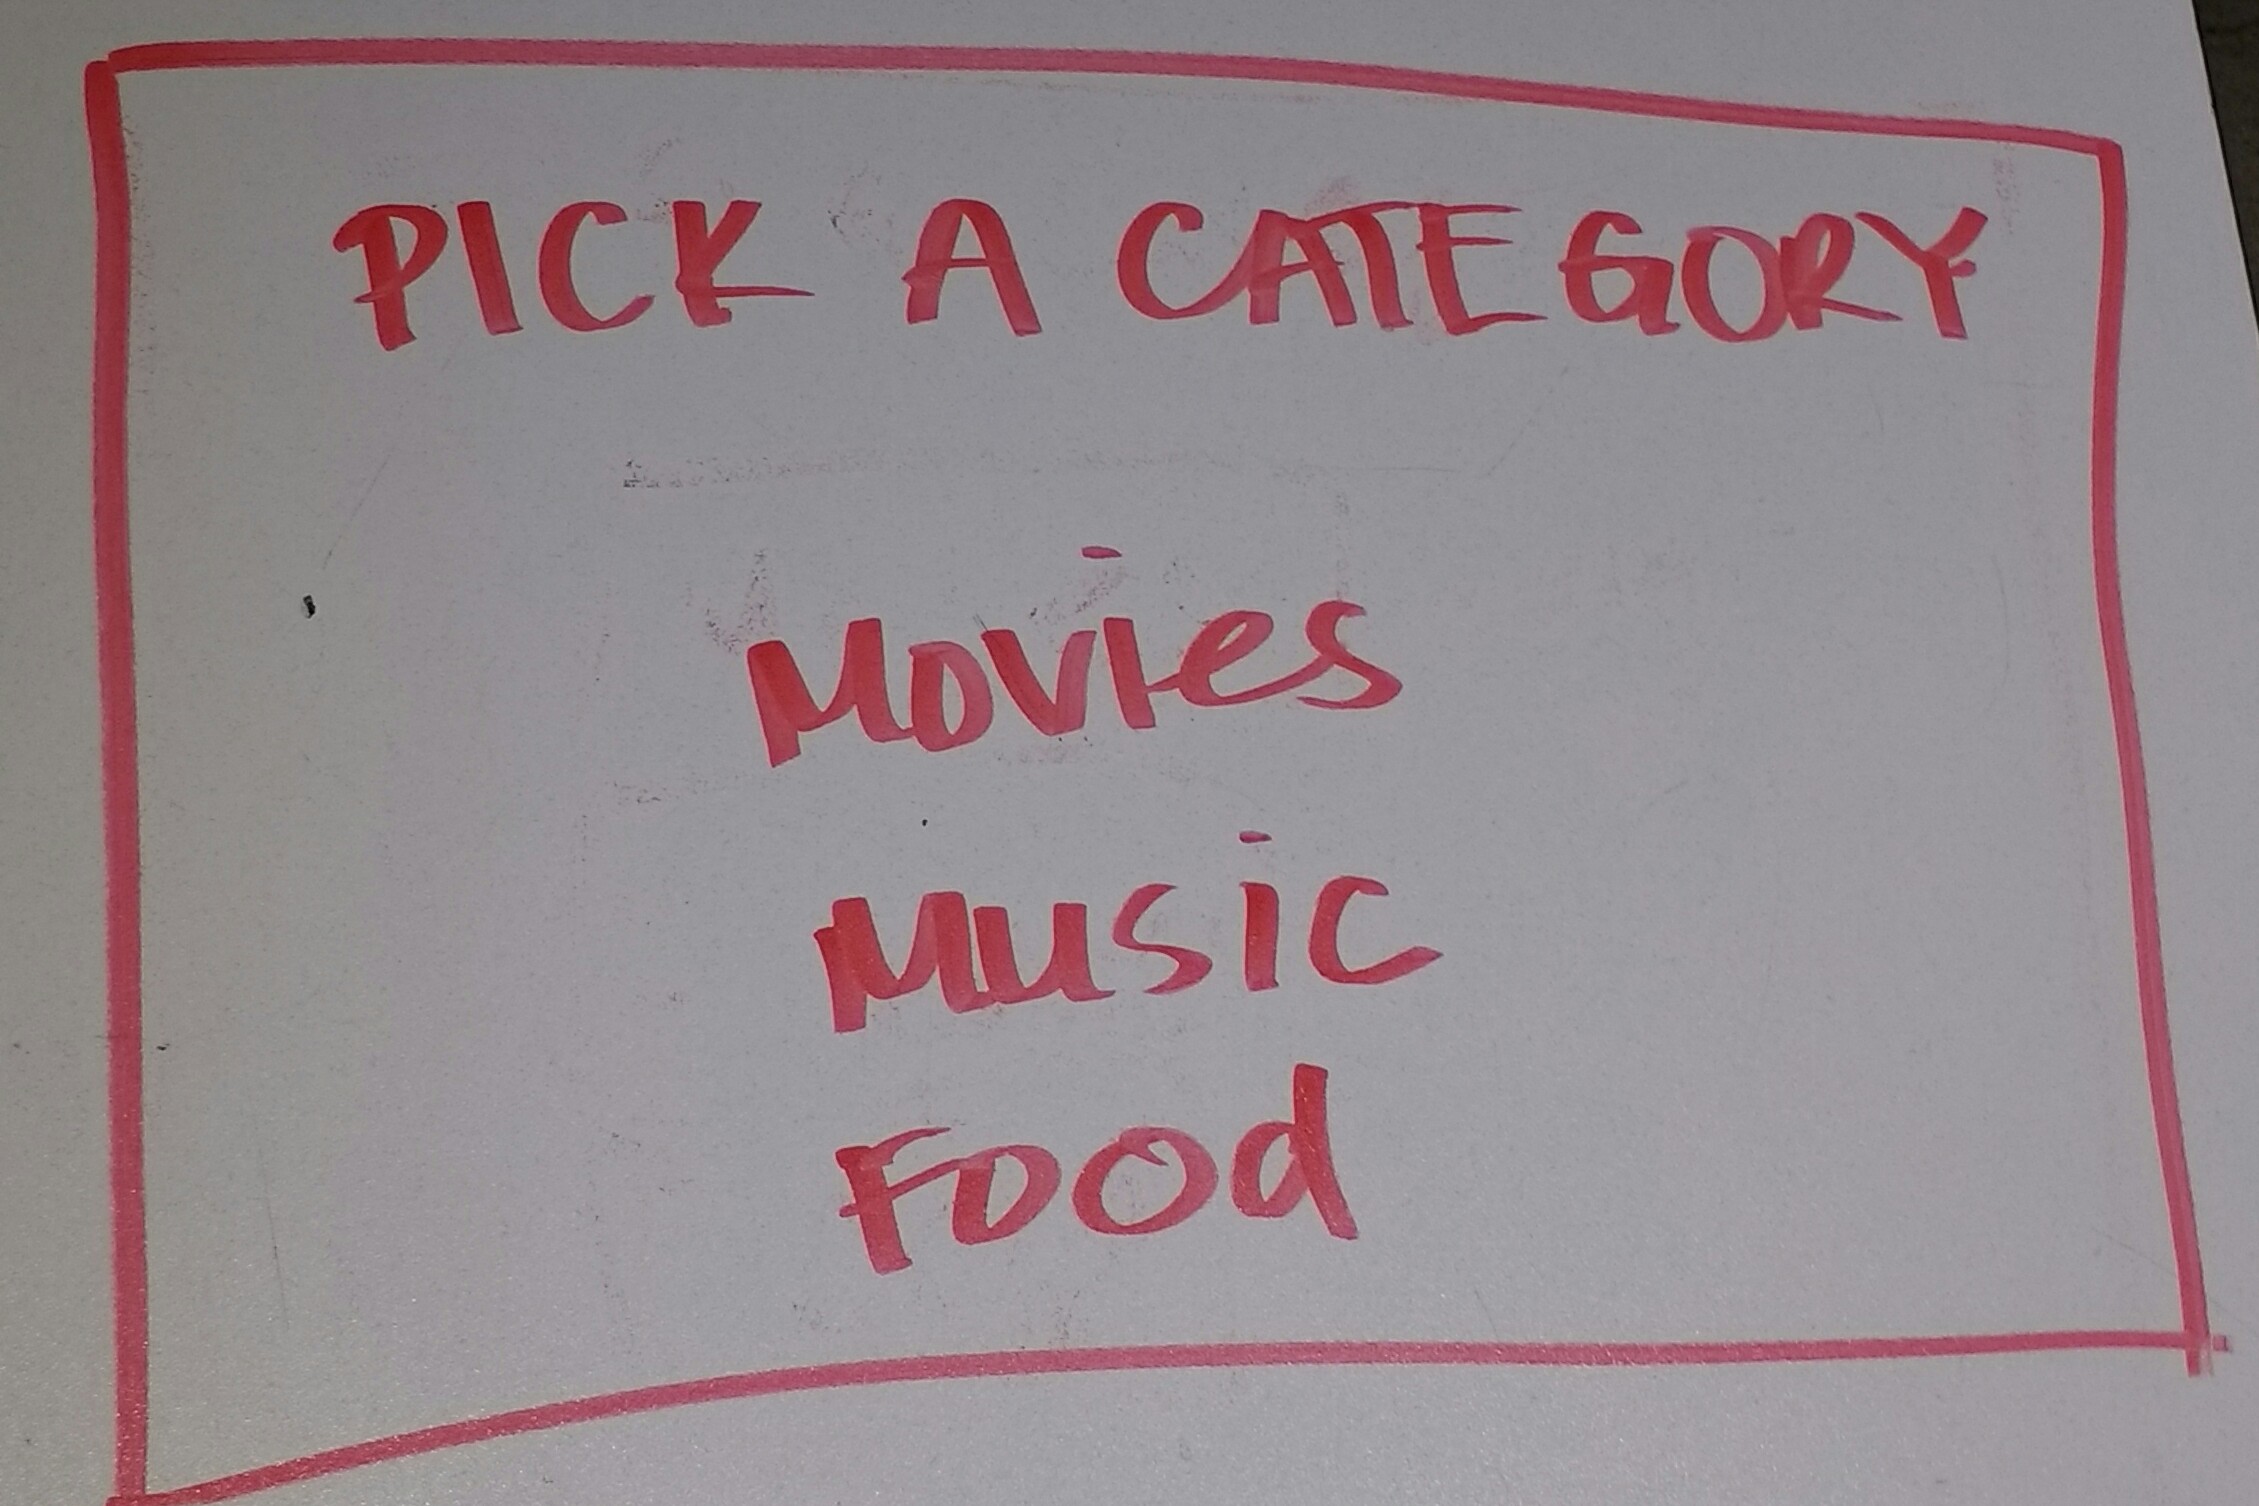 PICK A CATEGORY
Movies
Music
Food